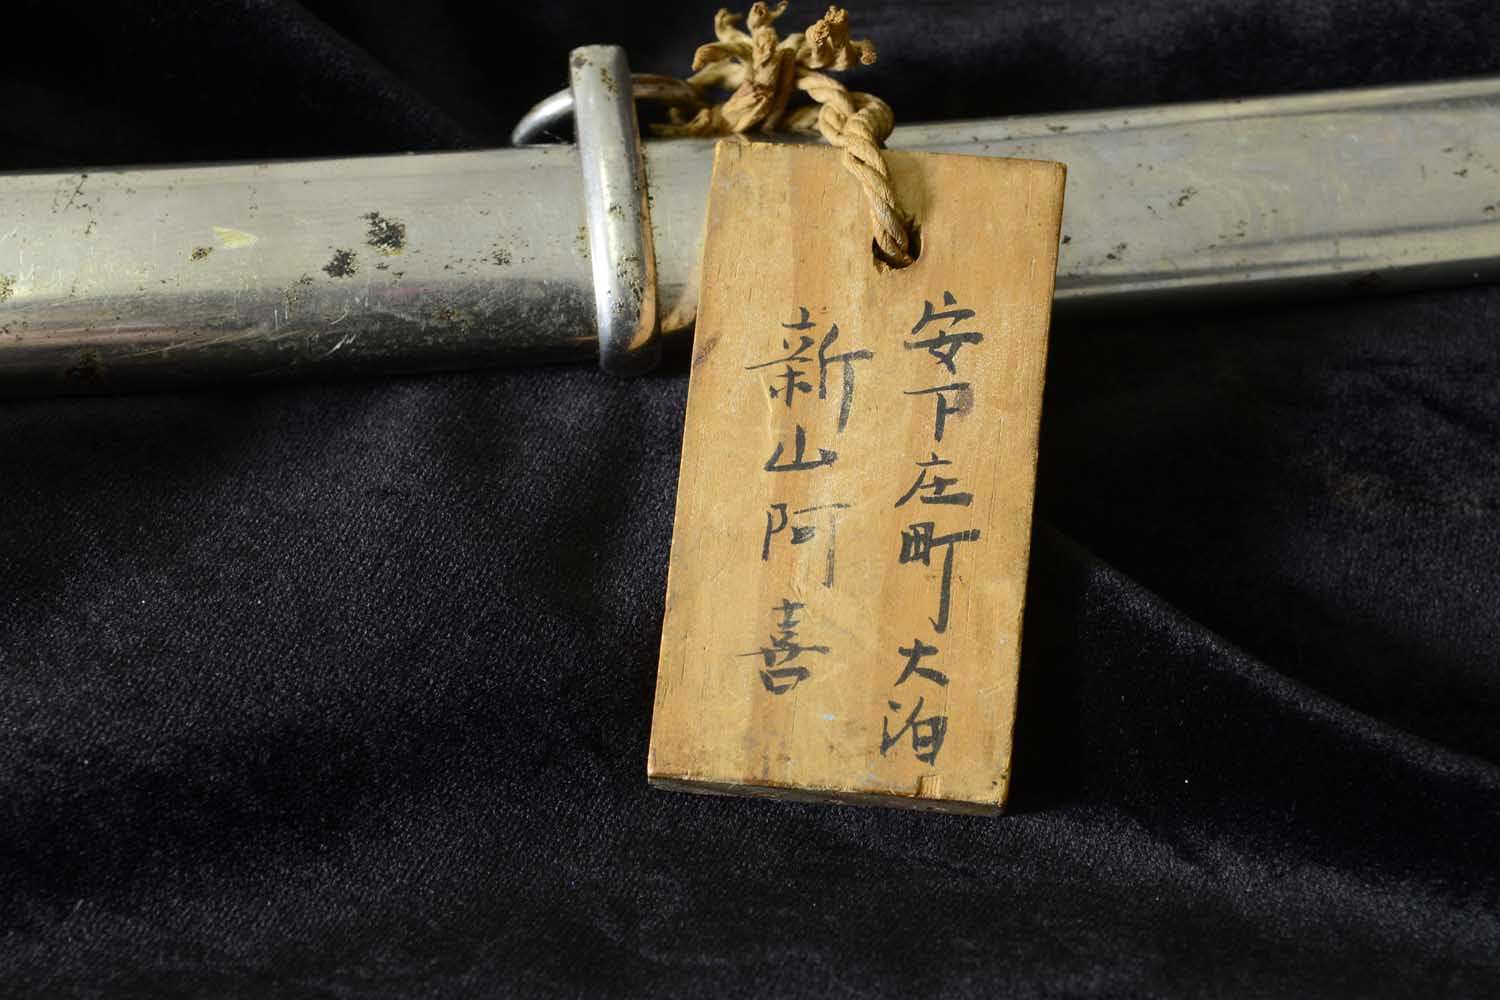 安下庄町大泊
新山阿喜